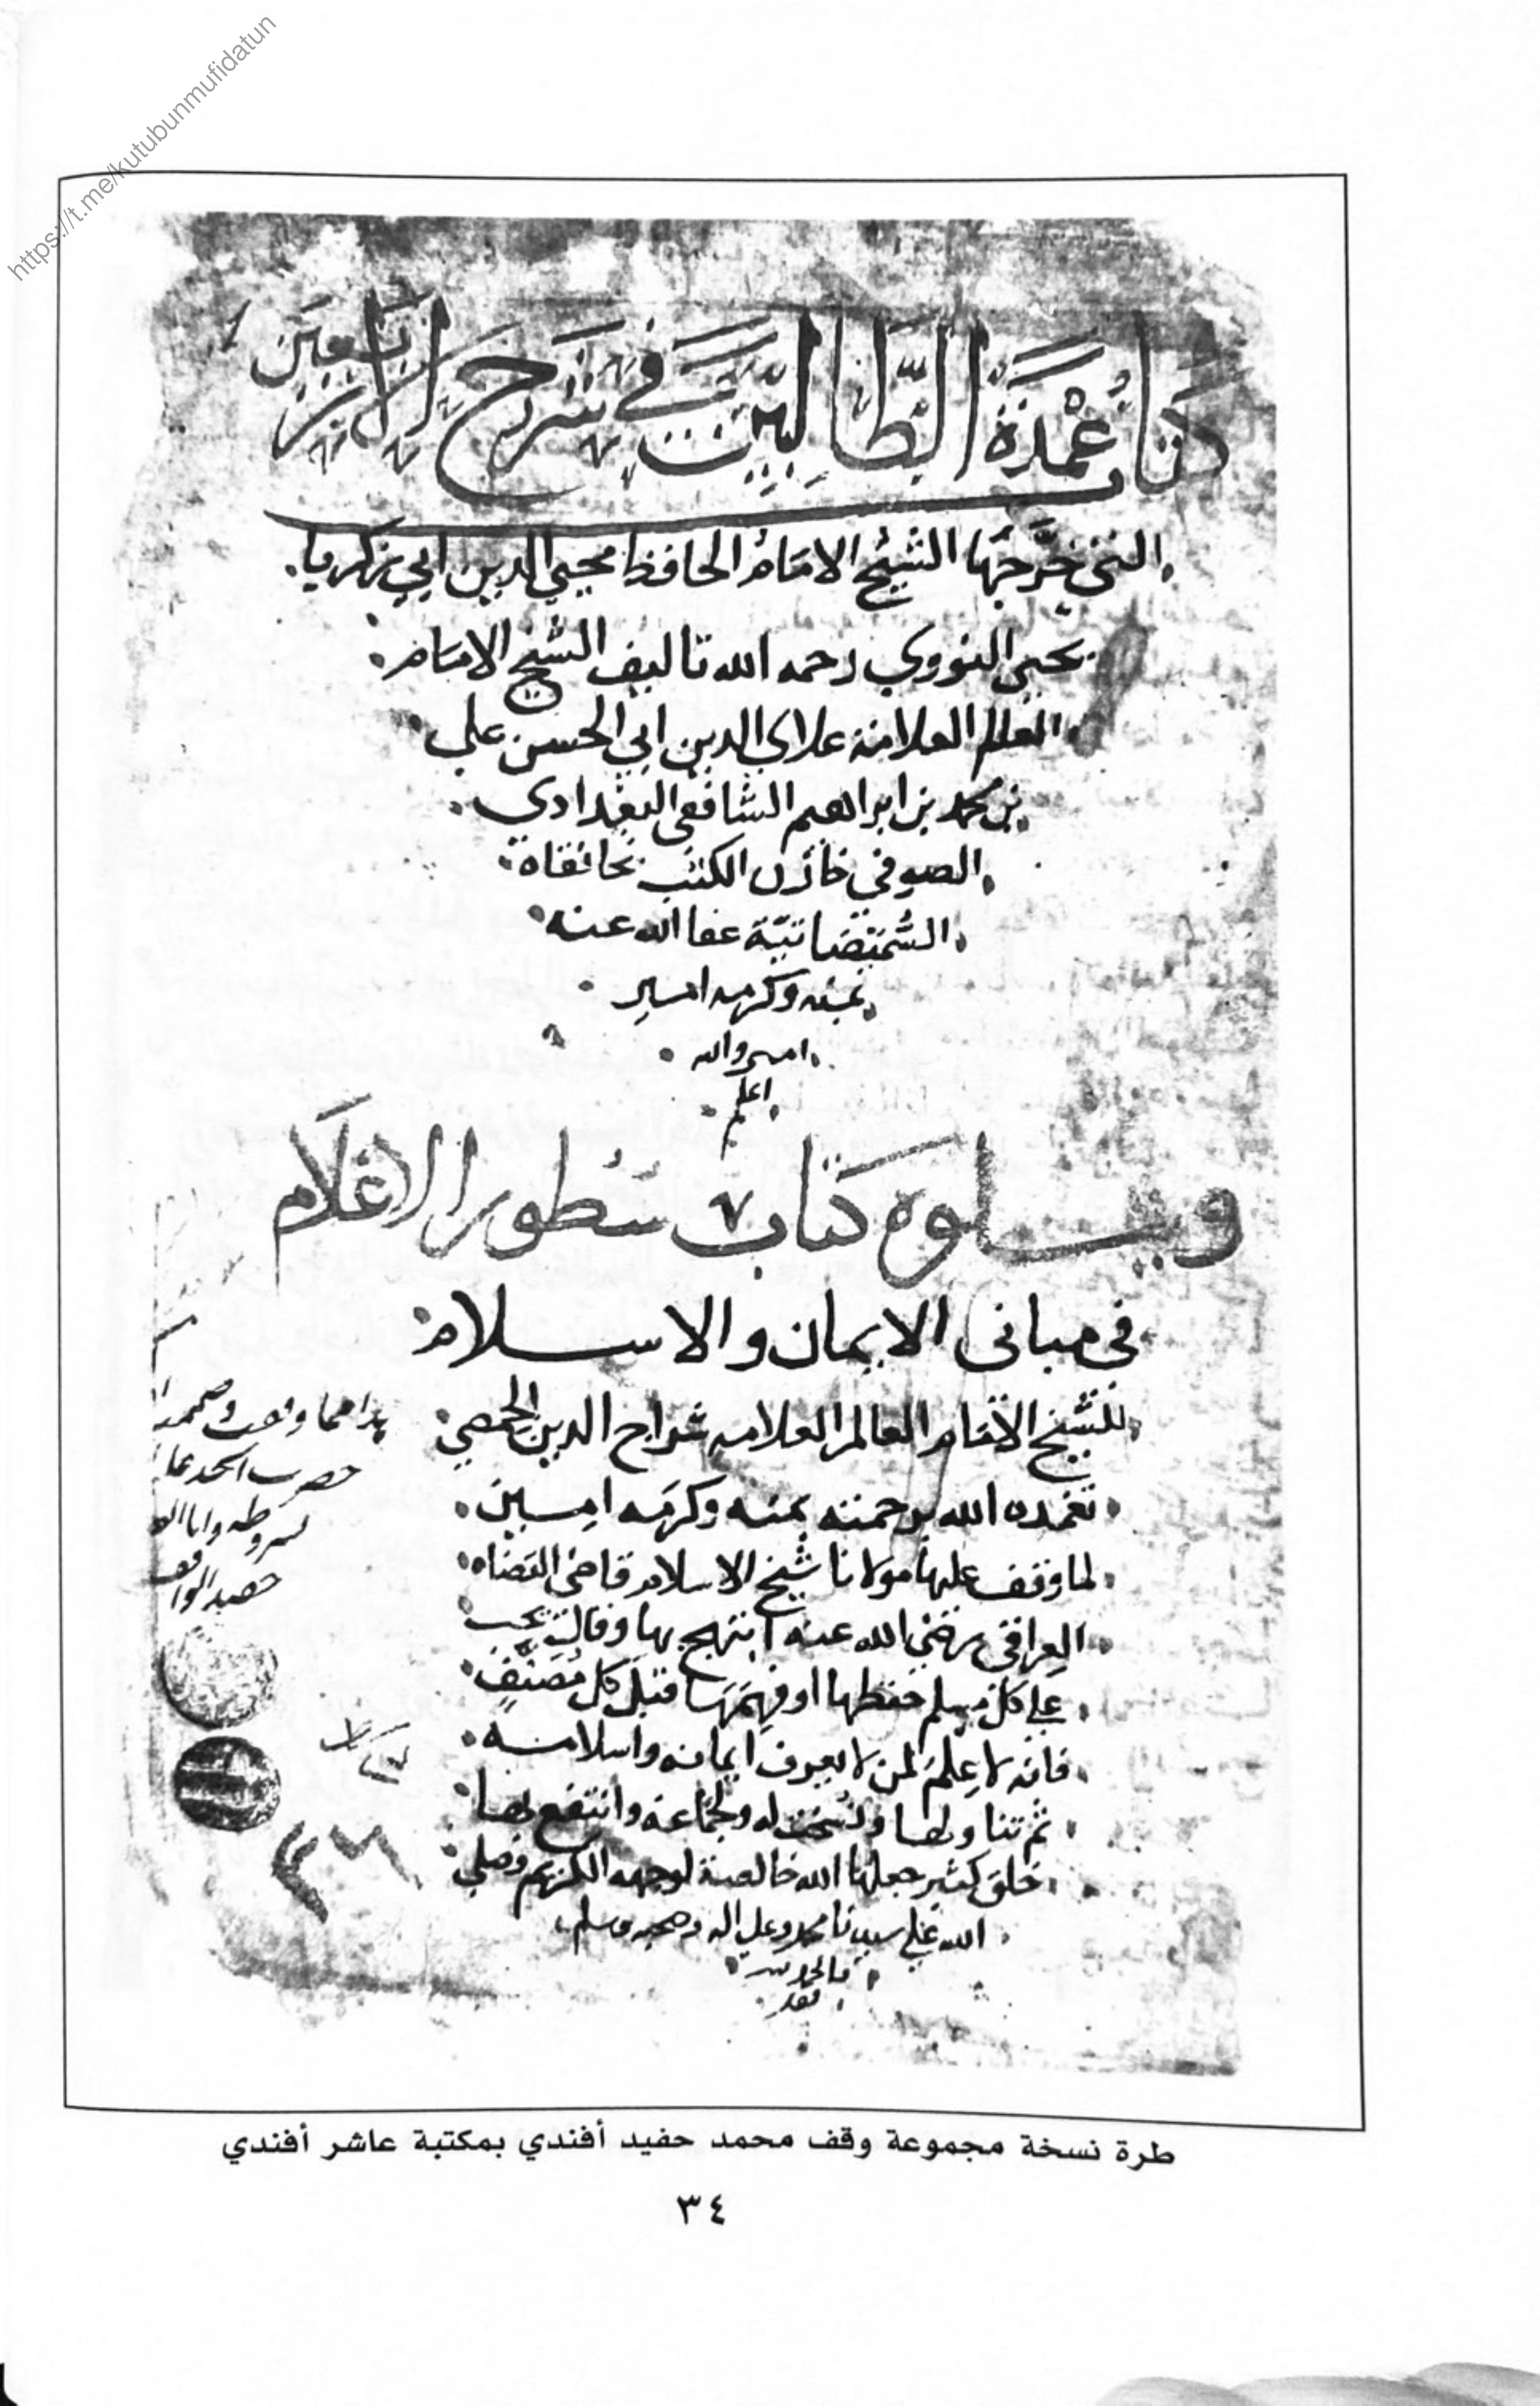 https://t.me/kutubunmufidatun
كتاب عُمْدَة الطَّالِبِين في شرح الاربعين
التي خرَّجَها الشيخ الامَامُ الحافظ محيي الدين ابي زكريا
يحيى النووي رحمه الله تاليف الشيخ الامام
العالم العلامة علاي الدين ابي الحسن علي
بن محمد بن ابراهيم الشافعي البغدادي
الصوفي خازن الكتب بخانقاة
السُّميضاتيّة عفا الله عنه
بمنه وكرمه امين
امين والله
اعلم
ويتلوه كتاب سُطور الاعْلَام
في مباني الايمان والاسلام
للشيخ الامام العالم العلامه سراج الدين الحمصي
تغمده الله برحمته بمنه وكرمه امين
لما وقف عليها مولانا شيخ الاسلام قاضي القضاه
العراقي رضي الله عنه ابتهج بها وقال يجب
على كل مسلم حفظها او فهمَهَا قبْلَ كل مُصَنَّفٍ
فانه لا عِلْمَ لمن لا يعرف ايمانه واسلامه
ثم تناولها ونُسخت له ولجماعة وانتفع بها
خلق كثير جعلها الله خالصة لوجهه الكريم وصلى
الله على سيدنا محمد وعلى اله وصحبه وسلم
هذا مما وقف
حسب
لشروطه وانا
حفيد الواقف
٢٦
طرة نسخة مجموعة وقف محمد حفيد أفندي بمكتبة عاشر أفندي
٣٤